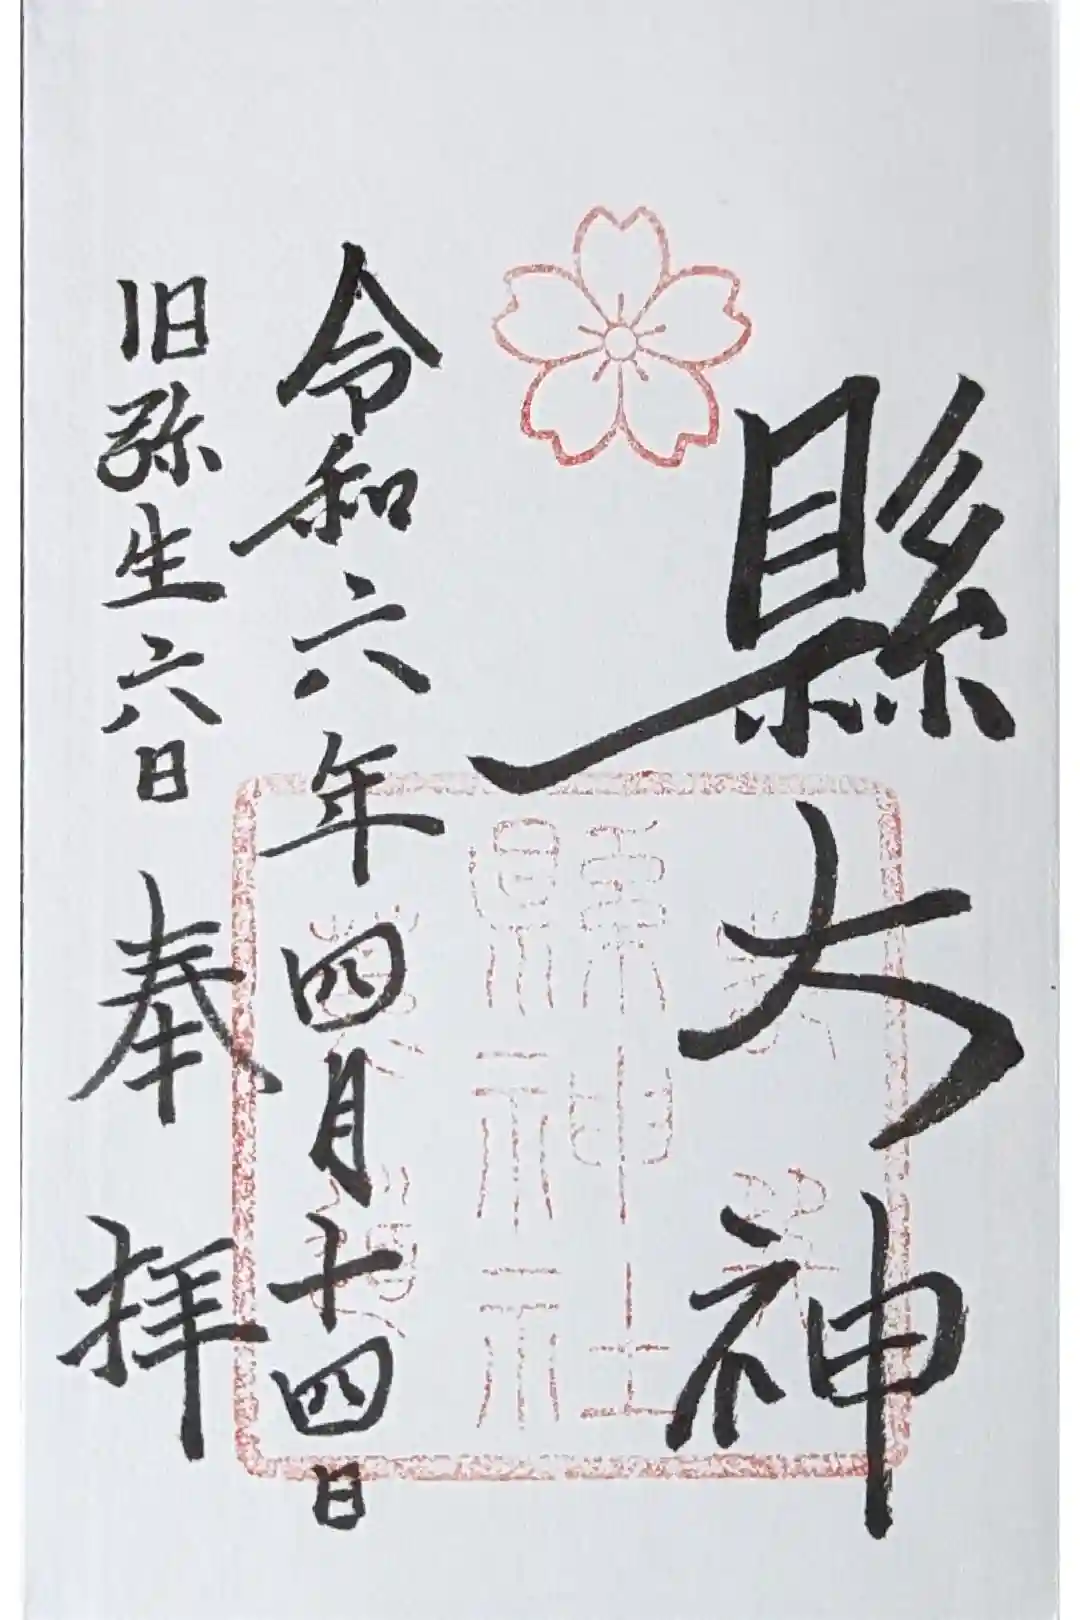 縣大神
縣神社
令和六年四月十四日
旧弥生六日 奉拝